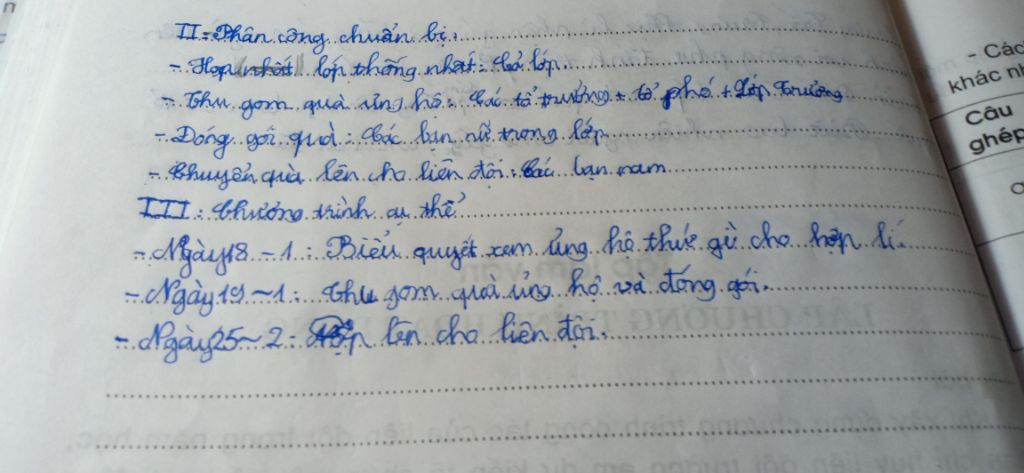 II - Phân công chuẩn bị.
- Họp lớp thống nhất: Cả lớp.
- Thu gom quà ủng hộ: Các tổ trưởng + tổ phó + Lớp Trưởng
- Đóng gói quà: Các bạn nữ trong lớp
- Chuyển quà lên cho liên đội: Các bạn nam
III: Chương trình cụ thể
- Ngày 18 - 1: Biểu quyết xem ủng hộ thứ gì cho hợp lí.
- Ngày 19 - 1: Thu gom quà ủng hộ và đóng gói.
- Ngày 25 - 2: Nộp lên cho liên đội.
- Các
khác nh
Câu
ghép